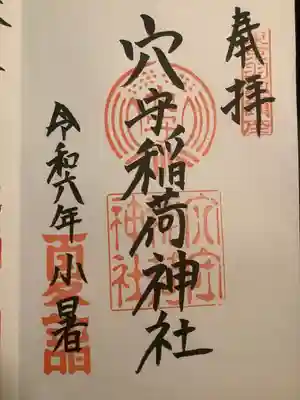 奉拝
穴守稲荷神社
令和六年小暑
穴守
稲荷
神社